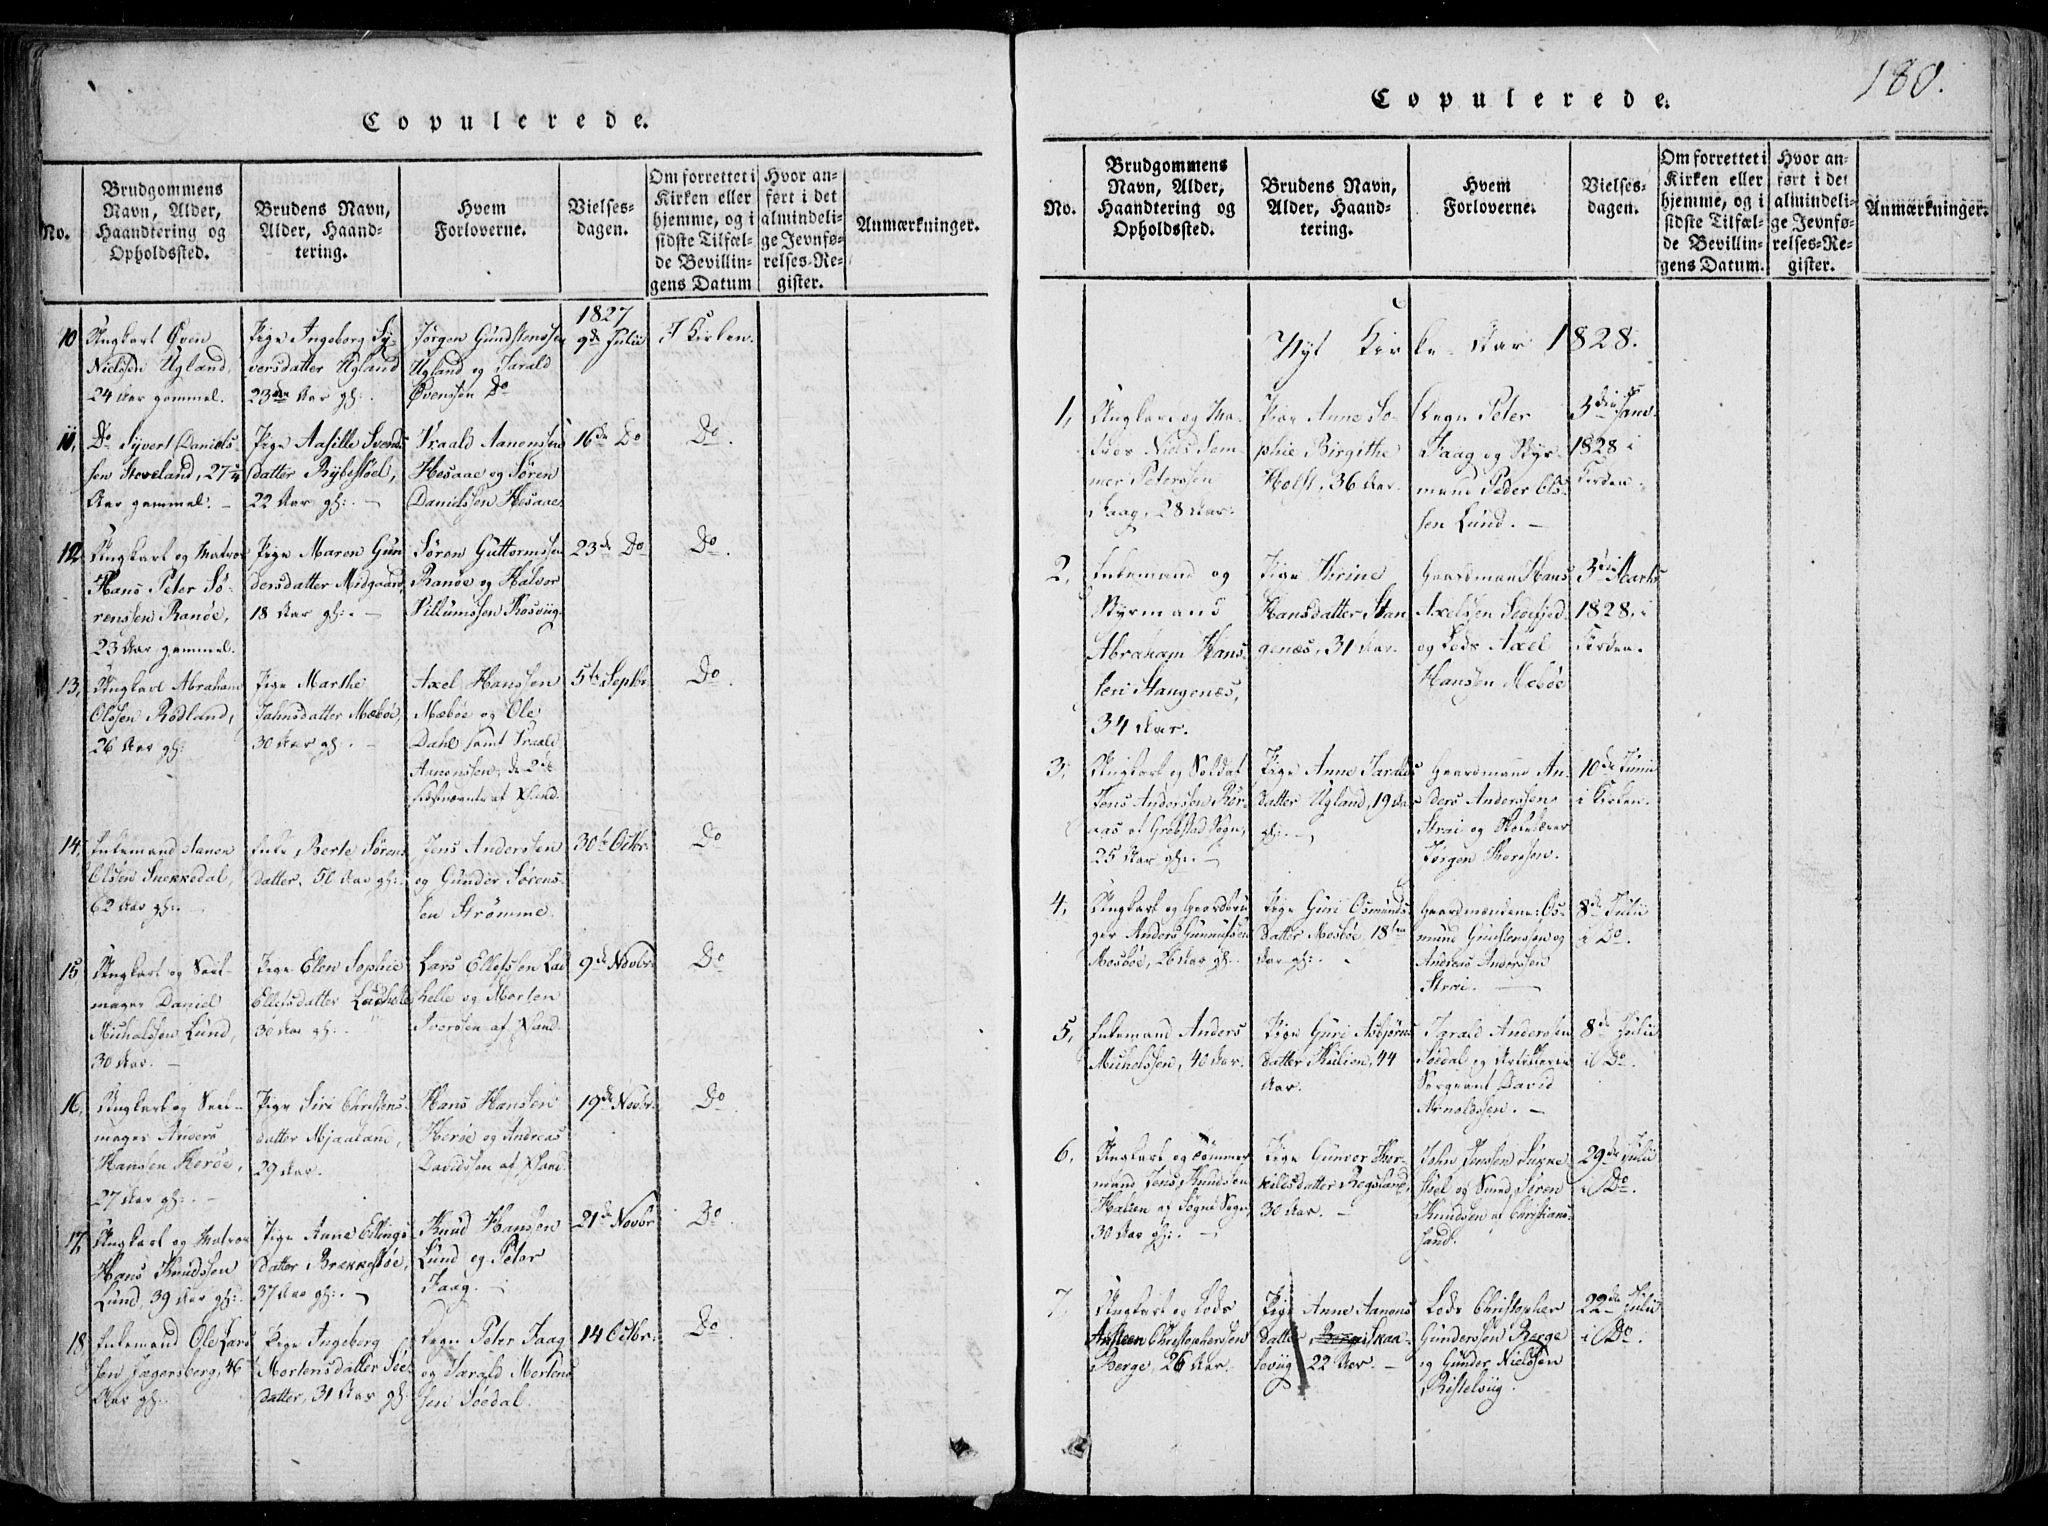 Copulerede.
No.
Brudgommens
Navn, Alder,
Haandtering og
Opholdssted.
Brudens Navn,
Alder, Haand-
tering.
Hvem
Forloverne.
Vielses-
dagen.
Om forrettet i
Kirken eller
hjemme, og i
sidste Tilfæl-
de Bevillin-
gens Datum
Hvor an-
ført i det
almindeli-
ge Jevnfø-
relses-Re-
gister.
Anmærkninger.
1827
10
Ungkarl Öven
Nielssen Ugland,
24 Aar gammel.
Pige Ingeborg Sy-
versdatter Ugland
23de Aar gl:.
Jørgen Gundstenssen
Ugland og Tarald
Øvenssen Do
9de Julii
I Kirken.
11,
Do Syvert Daniels
sen Stoveland, 27 1/4
Aar gammel. -
Pige Aasille Svends
datter Rybestøel,
22 Aar gl:. -
Vraald Aanonssen
Hesaae og Søren
Danielssen Hesaae
16de Do
Do.
12
Ungkarl og Matros
Hans Peter Sö-
renssen Ranöe,
23 Aar gammel.
Pige Maren Gun
dersdatter Midgaard,
18 Aar gl:. -
Søren Guttormssen
Ranøe og Halvor
Villumssen Kosviig.
23de Do
Do.
13,
Ungkarl Abraham
Olssen Rödland,
26 Aar gl:
Pige Marthe
Jahnsdatter Mæbøe,
30 Aar gl:. -
Axel Hanssen
Mæbøe og Ole
Dahl samt Vraald
Aanonssen, de 2de
sidstnævnte af Xsand.
5te Septbr.
Do
14,
Enkemand Aanen
Olssen Snekkedal,
62 Aar gl:. -
Enke Berte Sørens
datter, 50 Aar gl:.
Jens Anderssen
og Gunder Sørens-
sen Strømme.
30te Octbr.
Do
15,
Ungkarl og Seel-
mager Daniel
Michalssen Lund,
30 Aar. -
Pige Elen Sophie
Ellefsdatter Laushelle
30 Aar gl:.
Lars Ellefssen Lau
helle og Morten
Iverssen af Xsand.
9de Novbr.
Do
16,
Ungkarl og Seel-
mager Anders
Hanssen Herøe,
27 Aar gl:. -
Pige Siri Christens-
datter Mjaaland,
29 Aar.
Hans Hanssen
Herøe og Andreas
Davidssen af Xsand.
19de Novbr.
Do
17,
Ungkarl og Matros
Hans Knudssen
Lund, 39 Aar gl:.
Pige Anne Ellings
datter Brækkestøe,
37 Aar gl:. -
Knud Hanssen
Lund og Peter
Faag. -
21de Novbr
Do.
18
Enkemand Ole Lars
sen Jægersberg, 46
Aar gl:.
Pige Ingeborg
Mortensdatter Søe
datter, 31 Aar gl:
Degn Peter Faag
og Tarald Mortens
sen Søedal.
14 Octbr.
Do.
180.
Copulerede.
No.
Brudgommens
Navn, Alder,
Haandtering og
Opholdssted.
Brudens Navn,
Alder, Haand-
tering.
Hvem
Forloverne.
Vielses-
dagen.
Om forrettet i
Kirken eller
hjemme, og i
sidste Tilfæl-
de Bevillin-
gens Datum.
Hvor an-
ført i det
almindeli-
ge Jevnfø-
relses-Re-
gister.
Anmærkninger.
Nyt Kirke-Aar 1828.
1,
Ungkarl og Ma-
tros Niels Sem-
mer Peterssen
Faag, 28 Aar.
Pige Anne So-
phie Birgithe
Holst, 36 Aar.
Degn Peter
Faag og Styr-
mand Peder Ols-
sen Lund. -
3die Janr
1828 i
Kirken.
2,
Enkemand og
Styrmand
Abraham Hans-
sen Stangenæs,
34 Aar.
Pige Thrine
Hansdatter Stan
genæs, 31 Aar.
Gaardmand Hans
Axelssen
og Lods Axel
Hanssen Mæbøe
3die Marts
1828, i
Kirken.
3,
Ungkarl og Soldat
Jens Anderssen
af Sogn,
25 Aar gl:. -
Pige Anne Taralds
datter Ugland, 19 Aar
gl:. -
Gaardmand An-
ders Anderssen
Strai og Skolelærer
Jørgen Therssen.
10de Junii
i Kirken.
4,
Ungkarl og Gaardbru
ger Anders Gunnufssen
Mosbøe, 26 Aar gl:.
Pige Guri Osmunds
datter Mosbøe, 18ten
Aar gl:.
Gaardmændene: Os-
mund Gundstenssen og
Andreas Anderssen
Strai. -
8de Julii
i Do.
5,
Enkemand Anders
Michelssen, 40 Aar.
Pige Guri Asbjørns
datter Kulien, 44
Aar.
Tarald Anderssen
Søedal og Artillerie
Sergeant David
Arnoldssen. -
8de Julii
i Do.
6,
Ungkarl og Tømmer
mand Jens Knudssen
Halsen af Søgne Sogn,
30 Aar gl:. -
Pige Gunvor Thor
kildsdatter Regsland,
30 Aar. -
John Jenssen
og Smed Sören
Knudssen af Christians-
sand.
29de Julii
i Do.
7.
Ungkarl og Lods
Ansteen Christopherssen
Berge, 26 Aar.
Pige Anne Aanons
datter, Skaa-
leviig 22 Aar. -
Lods Christopher
Gunderssen Berge
og Gunder Nielssen
Ristelviig.
22de Julii
i Do.